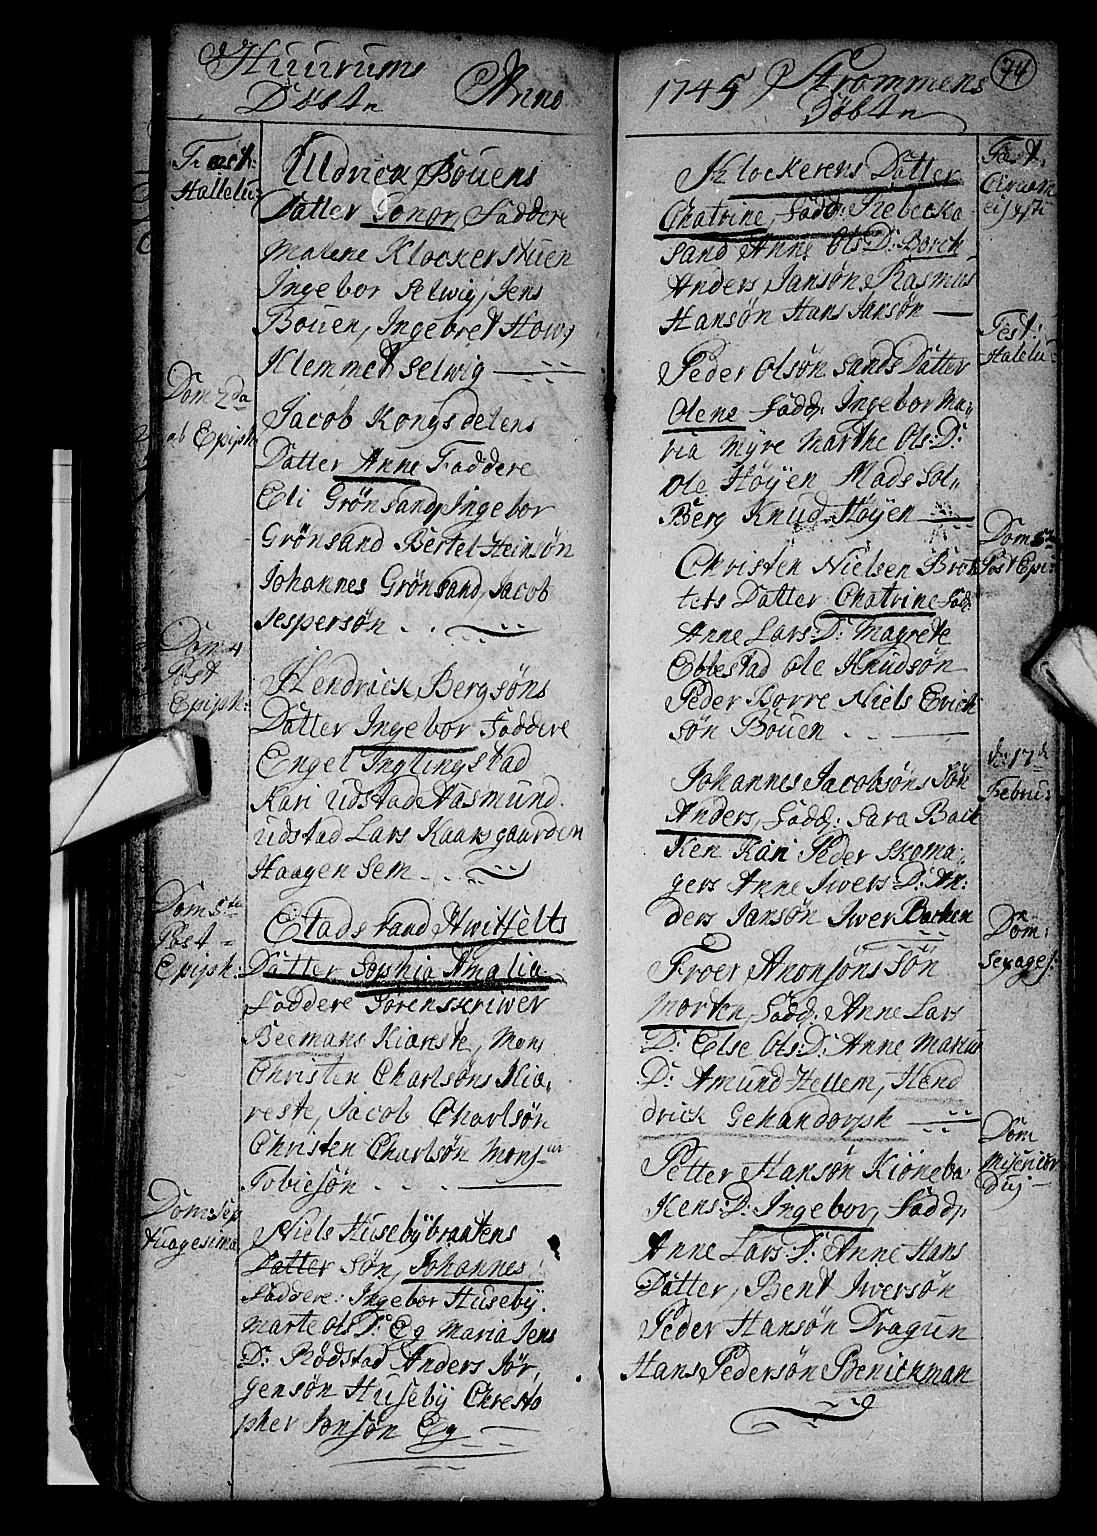 Huurums Anno
Døbte
Fest:
Hallelu:
Uldrick Bouens
Datter Gonor, Faddere
Malene Klockerstuen
Ingebor Selwig, Jens
Bouen, Ingebret Hows
Klemmet Selwig
Dom 2da
ab Epiph:
Jacob Kongsdelens
Datter Anne Faddere
Eli Grønsand, Ingebor
Grønsand Bertel Heinsøn
Johannes Grønsand, Jacob
Jespersøn
Dom 4
Post
Epiph:
Hendrick Bergsøns
Datter Ingebor Faddere
Engel Inglingstad
Kari Udstad Aasmund
Udstad Lars Kaarsgaarden
Haagen Sem
Dom 5te
Post
Epiph:
Etadsraad Hwitfelts
Datter Sophia Amalia
Faddere Sørenskriwer
Beemans Kiæreste, Mons
Christen Charlsøns Kiæ,
reste, Jacob Charlsøn
Christen Charlsøn Monsieur
Tobiesøn
Dom: Sep
tuagesima
Niels Husebybraatens
Datter Søn, Johannes
Faddere: Ingebor Huseby.
Marte Ols D: Eg Maria Jens
D: Rødstad Anders Jør,
gensøn Huseby Christo
pher Jonsøn Eg
1745 Strommens 74
Døbte
Fest:
Circum
cis: Xsti
Klockerens Datter
Chatrine, Fadd: Rebecka
Sand Anne Ols D: Borch
Anders Jansøn Rasmus
Hansøn Hans Jansøn
Fest:
Halelu:
Peder Olsøn Sands Datter
Olene Fadd: Ingebor Ma,,
ria Myre Marthe Ols: D:
Ole Høyen Mads Sol,,
Berg Knud Høyen
Dom 5te
Post Epi:
Christen Nielsen Brot
tets Datter Chatrine Fad:
Anne Lars: D: Magrete
Ebbestad Ole Knudsøn
Peder Borre Niels Erich
søn Bouen
d: 17de
Febru:
Johannes Jacobsøns Søn
Anders, Fadd: Sara Back
ken Kari Peder Skoma,
gers Anne Iwers D: An:
ders Jansøn Iwer Backen
Dom:
Sexages:
Froer Anonsøns Søn
Morten, Fadd: Anne Lars
D: Else Ols: D: Anne Marius
D: Amund Hellem, Hend
drick Gehandorph
Dom
Misericor
dus
Petter Hansøn Kiøneba
kens: D: Ingebor, Fadd:
Anne Lars: D: Anne Hans
Datter, Bent Iwersøn
Peder Hansøn Dragun
Hans Pedersøn Benickman